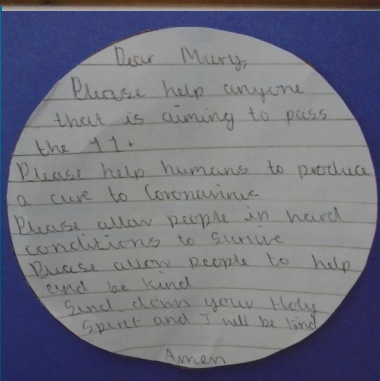 Dear Mary,
Please help anyone
that is aiming to pass
the 11+
Please help humans to produce
a cure to Coronavirus
Please allow people in hard
conditions to Survive
Please allow people to help
and be kind
Send down your Holy
Spirit and I will be kind
Amen